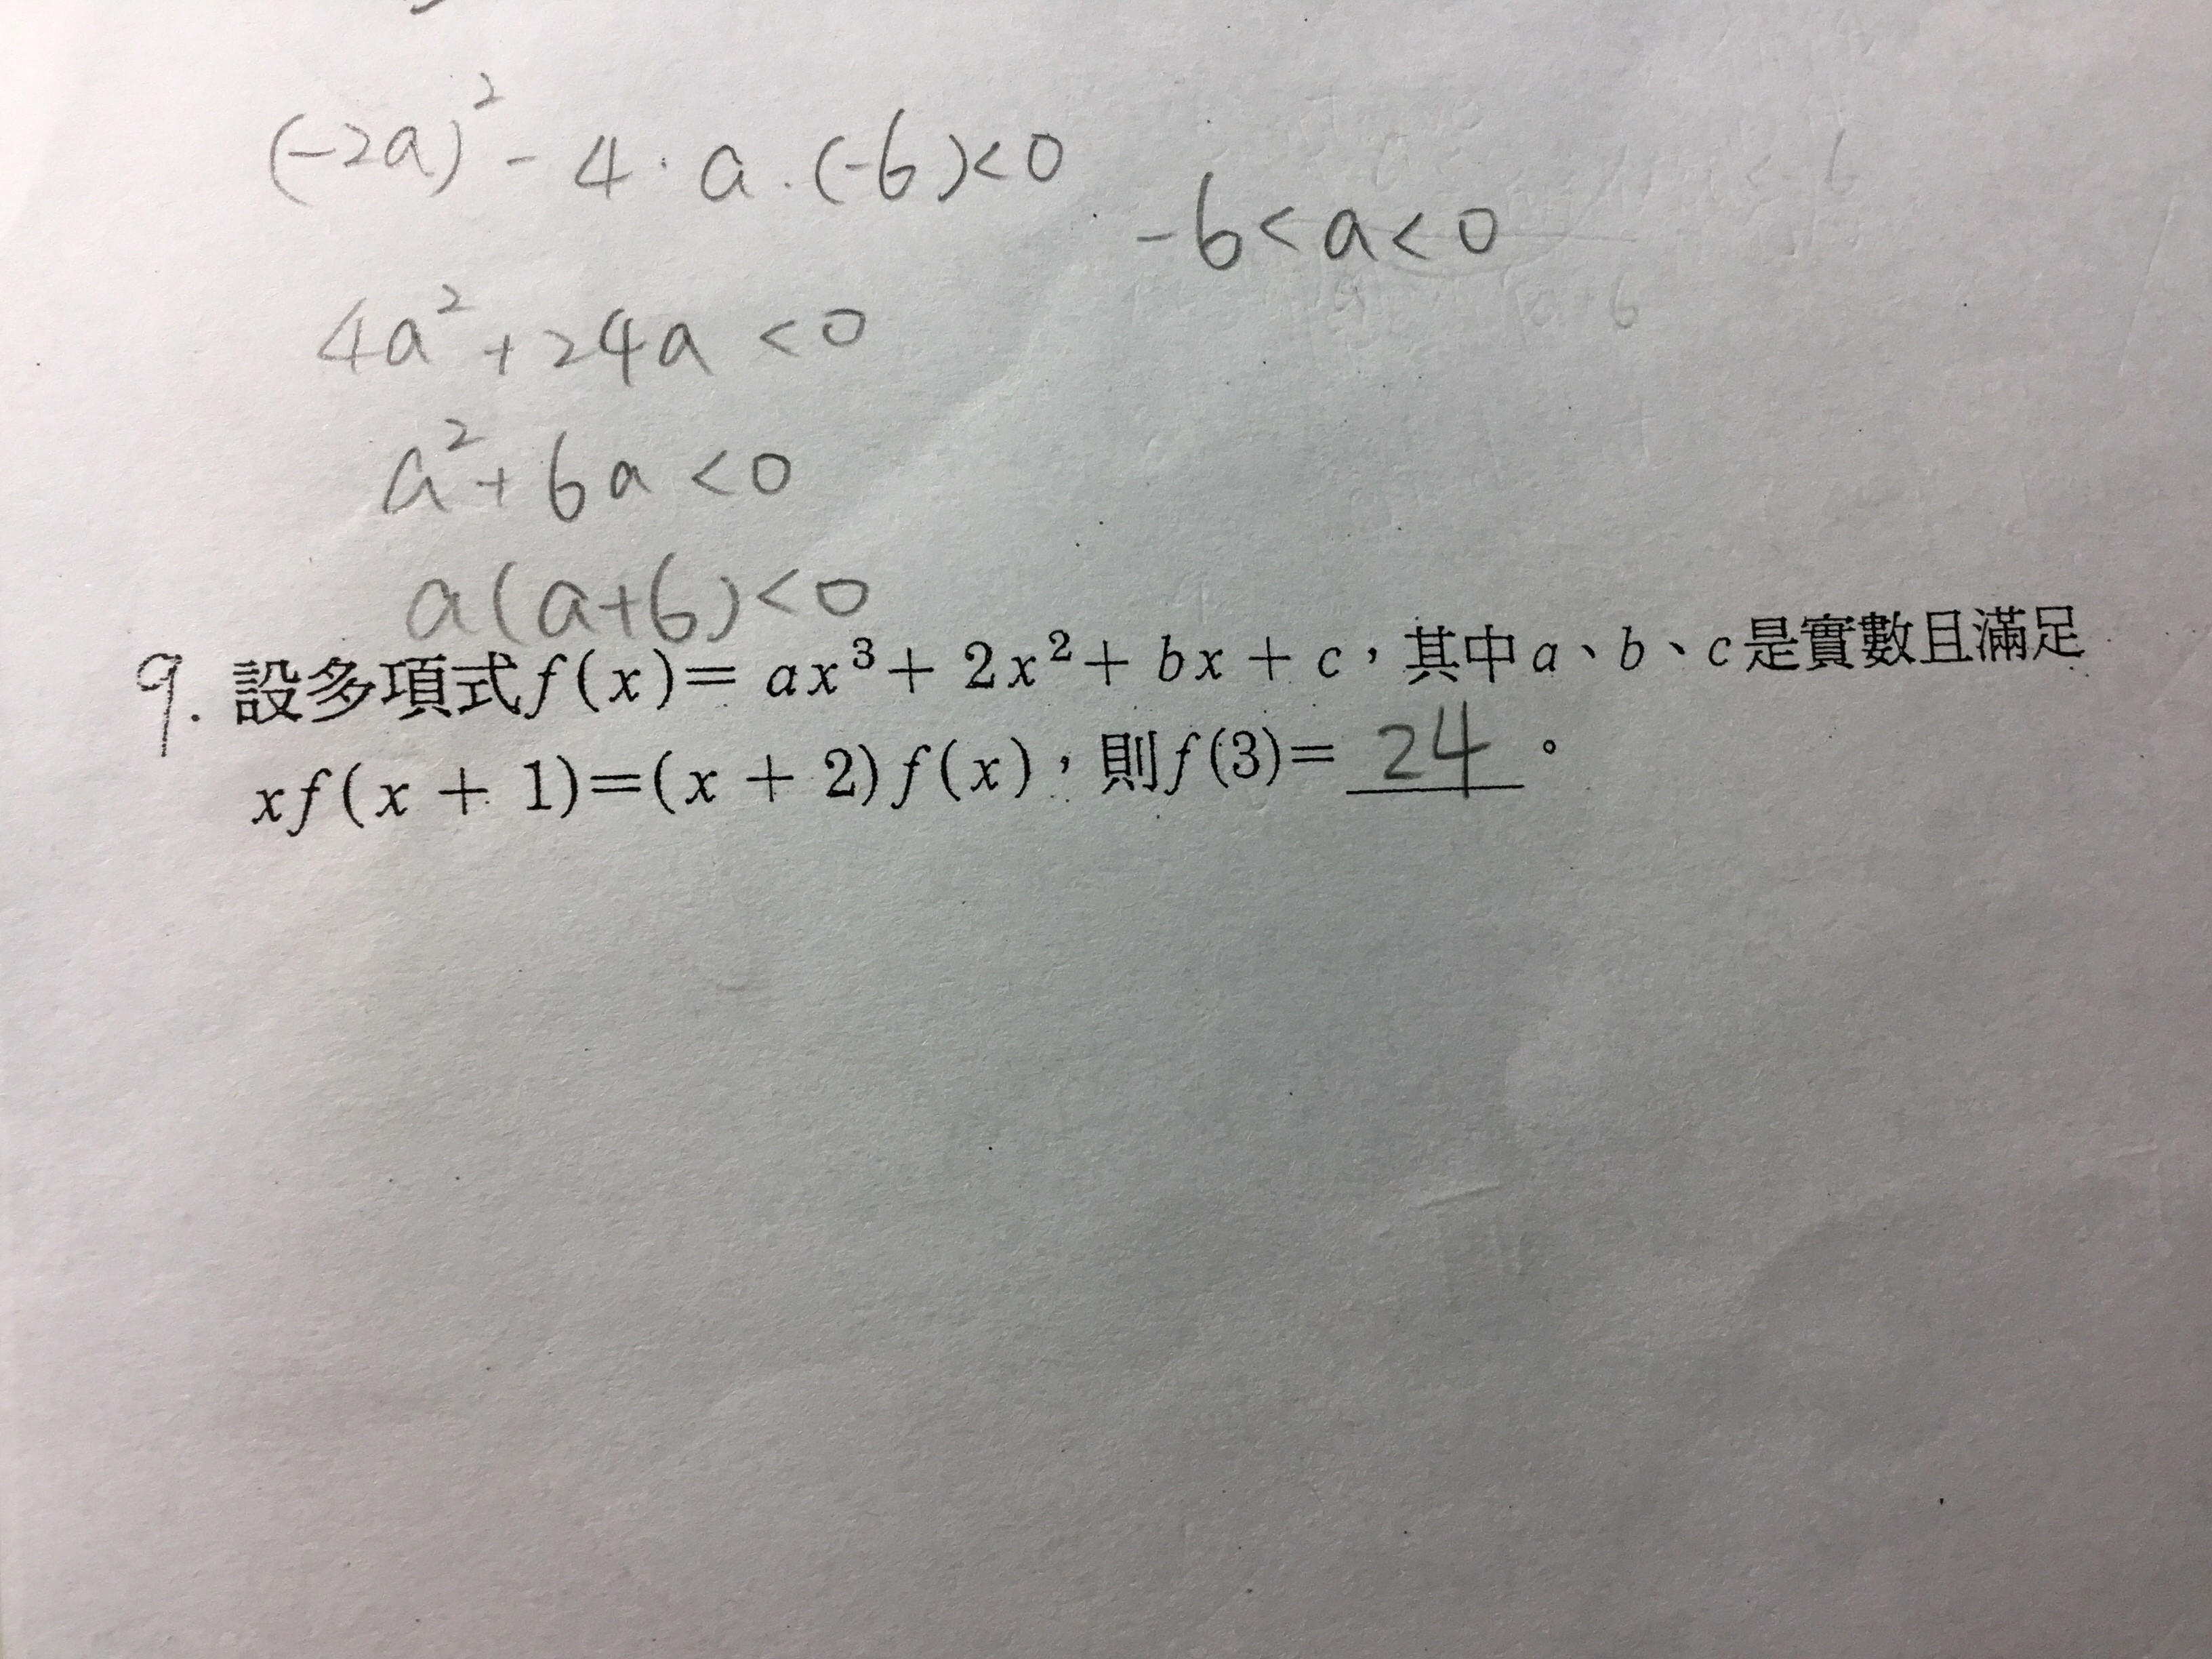 (-2a)² - 4 · a · (-6) < 0
-6 < a < 0
4a² + 24a < 0
a² + 6a < 0
a(a+6) < 0
9. 設多項式f(x)= ax³+ 2x²+ bx + c，其中a、b、c是實數且滿足
xf(x + 1)=(x + 2)f(x)，則f(3)= 24 。